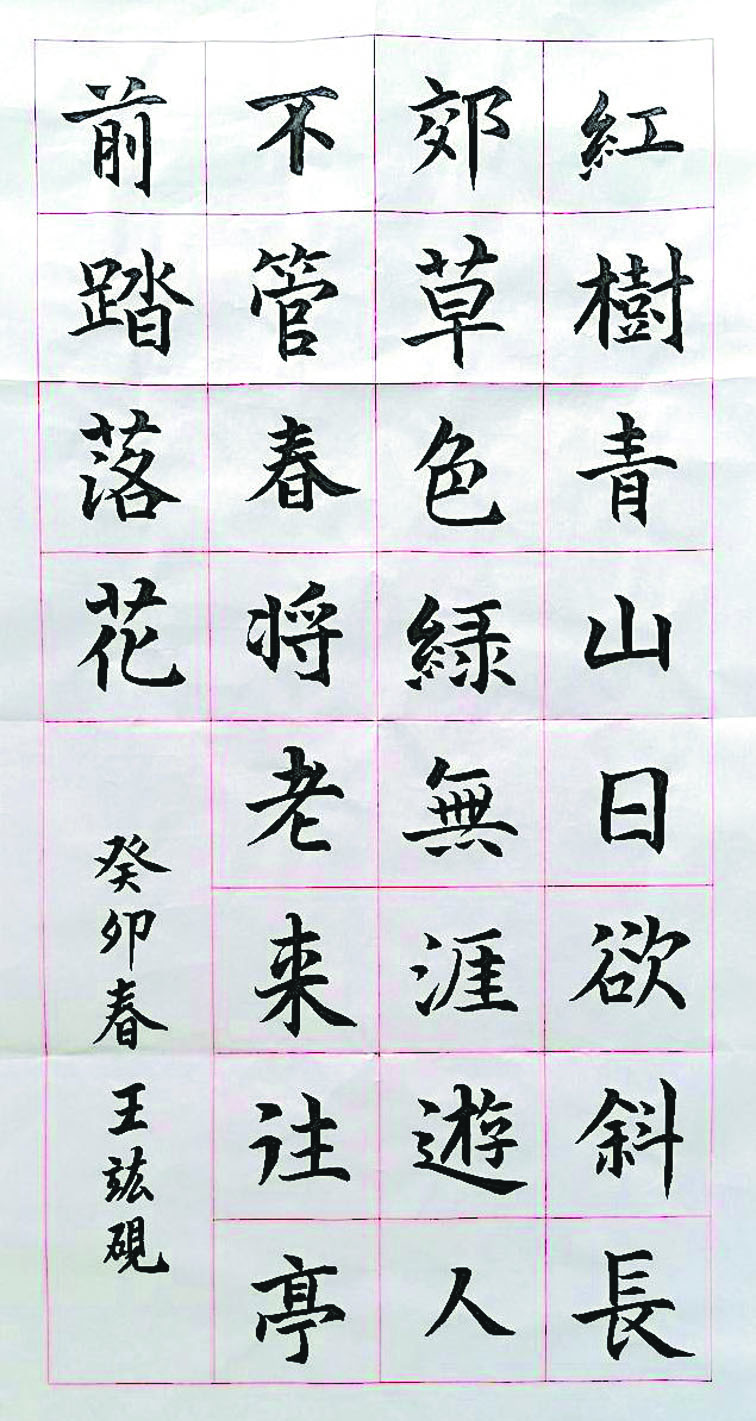 紅樹青山日欲斜長
郊草色綠無涯遊人
不管春将老来往亭
前踏落花
癸卯春 王竑硯